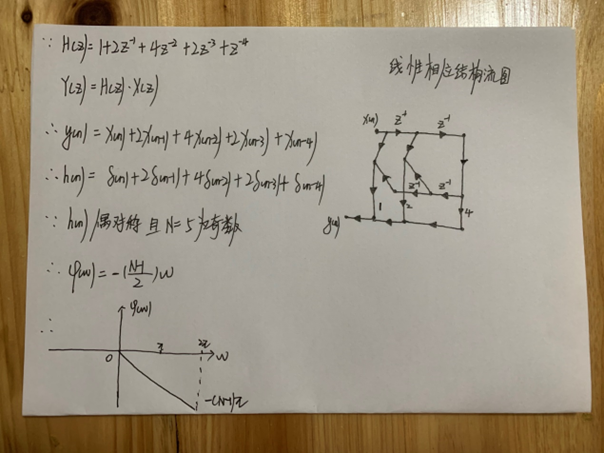 ∵ H(z)=1+2z⁻¹+4z⁻²+2z⁻³+z⁻⁴
Y(z)=H(z)·X(z)
∴ y(n)=x(n)+2x(n-1)+4x(n-2)+2x(n-3)+x(n-4)
∴ h(n)=δ(n)+2δ(n-1)+4δ(n-2)+2δ(n-3)+δ(n-4)
∵ h(n)偶对称 且 N=5为奇数
∴ φ(w)=-(N-1/2)w
∴
φ(w)
0 π 2π w
-(N-1)π
线性相位结构流图
x(n) z⁻¹ z⁻¹
z⁻¹ z⁻¹
y(n) 1 2 4